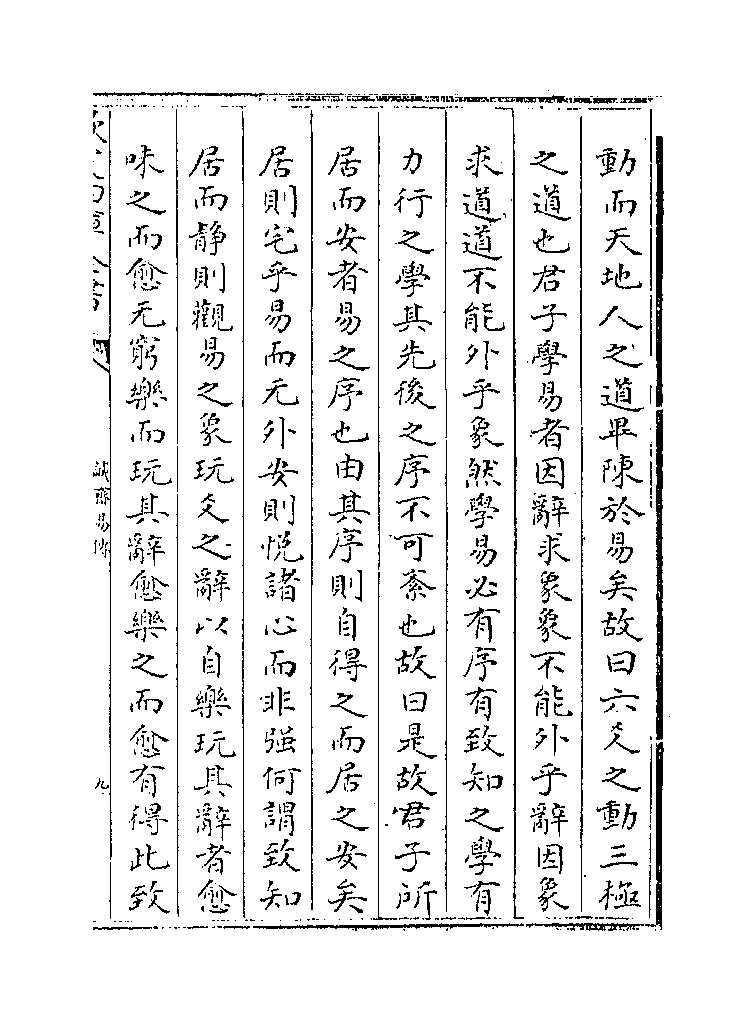 動而天地人之道畢陳於易矣故曰六爻之動三極
之道也君子學易者因辭求象象不能外乎辭因象
求道道不能外乎象然學易必有序有致知之學有
力行之學其先後之序不可紊也故曰是故君子所
居而安者易之序也由其序則自得之而居之安矣
居則宅乎易而无外安則悅諸心而非強何謂致知
居而静則觀易之象玩爻之辭以自樂玩其辭者愈
味之而愈无窮樂而玩其辭愈樂之而愈有得此致
誠齋易傳
九